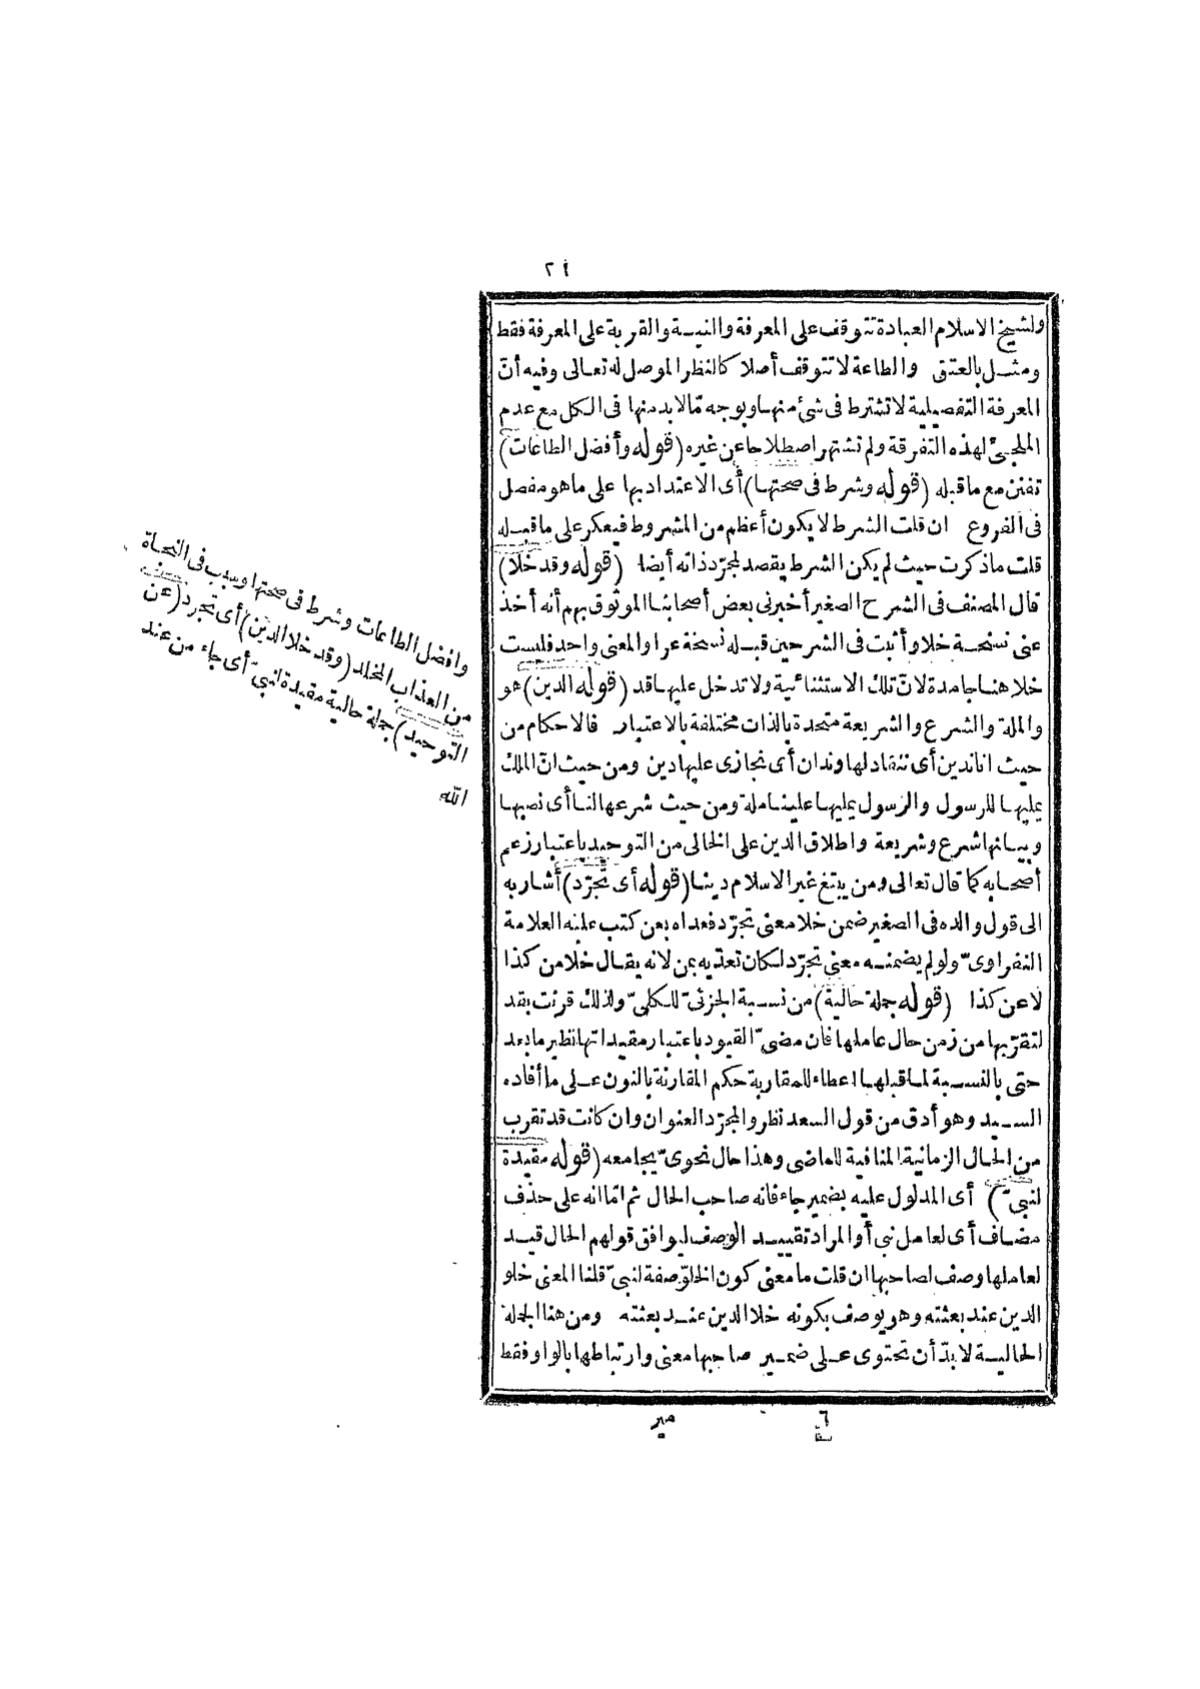 ٢٤
ولشيخ الاسلام العبادة تتوقف على المعرفة والنيـة والقربة على المعرفة فقط
ومثـل بالعتق والطاعة لا تتوقف أصلا كالنظر الموصل له تعالى وفيه أن
المعرفة التفصيلية لا تشترط فى شئ منها وبوجه ما لابد منها فى الكل مع عدم
الملجئ لهذه التفرقة ولم تشتهر اصطلاحا عن غيره (قوله وأفضل الطاعات)
تفنن مع ما قبله (قوله وشرط فى صحتها) أى الاعتداد بها على ما هو مفصل
فى الفروع ان قلت الشرط لا يكون أعظم من المشروط فيعكر على ما قبله
قلت ماذكرت حيث لم يكن الشرط يقصد لمجرّد ذاته أيضا (قوله وقد خلا)
قال المصنف فى الشرح الصغير أخبرنى بعض أصحابنا الموثوق بهم أنه أخذ
عنى نسخة خلا وأثبت فى الشرحين قبله نسخة عرا والمعنى واحد فليست
خلا هنا جامدة لانّ تلك الاستثنائية ولا تدخل عليها قد (قوله الدين) هو
والملة والشرع والشريعة متحدة بالذات مختلفة بالاعتبار فالاحكام من
حيث اناندين أى ننقاد لها وندان أى نجازى عليها دين ومن حيث انّ الملك
يمليها للرسول والرسول يمليها علينا ملة ومن حيث شرعها لنا أى نصبها
وبيانها شرع وشريعة واطلاق الدين على الخالى من التوحيد باعتبار زعم
أصحابه كما قال تعالى ومن يبتغ غير الاسلام دينا (قوله أى تجرّد) أشار به
الى قول والده فى الصغير ضمن خلا معنى تجرّد فعداه بعن كتب عليه العلامة
النفراوىّ ولو لم يضمنه معنى تجرّد لكان تعديه بمن لانه يقال خلا من كذا
لا عن كذا (قوله جملة حالية) من نسبة الجزئىّ للكلىّ ولذلك قرنت بقد
لتقرّبها من زمن حال عاملها فان مضىّ القيود باعتبار مقيداتها نظير ما بعد
حتى بالنسبة لما قبلها اعطاء للمقاربة حكم المقارنة بالنون على ما أفاده
السيد وهو أدق من قول السعد نظر والمجرّد العنوان وان كانت قد تقرب
من الحال الزمانية المنافية للماضى وهذا حال نحوىّ يجامعه (قوله مقيدة
لنبىّ) أى المدلول عليه بضمير جاء فانه صاحب الحال ثم امّا انه على حذف
مضاف أى لعامل نبى أو المراد تقييد الوصف ليوافق قولهم الحال قيد
لعاملها وصف لصاحبها ان قلت ما معنى كون الخلوّ صفة لنبىّ قلنا المعنى خلو
الدين عند بعثته وهو يوصف بكونه خلا الدين عند بعثته ومن هنا الجملة
الحالية لا بدّ أن تحتوى على ضمير صاحبها معنى وارتباطها بالواو فقط
وافضل الطاعات وشرط فى صحتها وسبب فى النجاة
من العذاب المخلد (وقد خلا الدين) أى تجرد (عن
التوحيد) جملة حالية مقيدة لنبىّ أى جاء من عند
الله
٦
مير